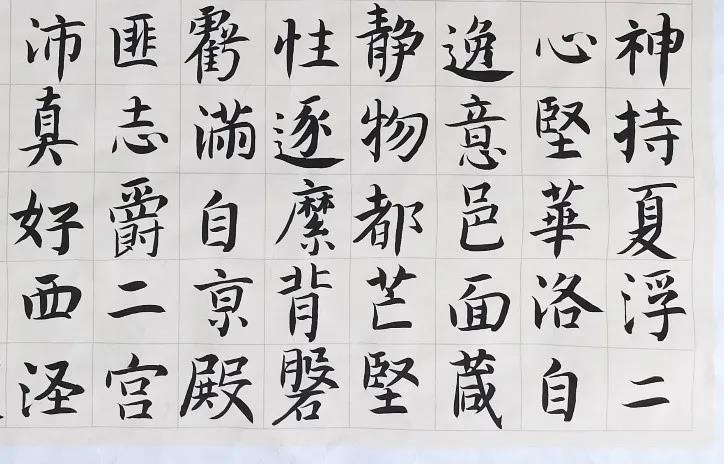 沛匪虧性静逸心神
真志滿逐物意堅持
好爵自縻都邑華夏
西二亰背芒面洛浮
泾宫殿磐堅蔵自二